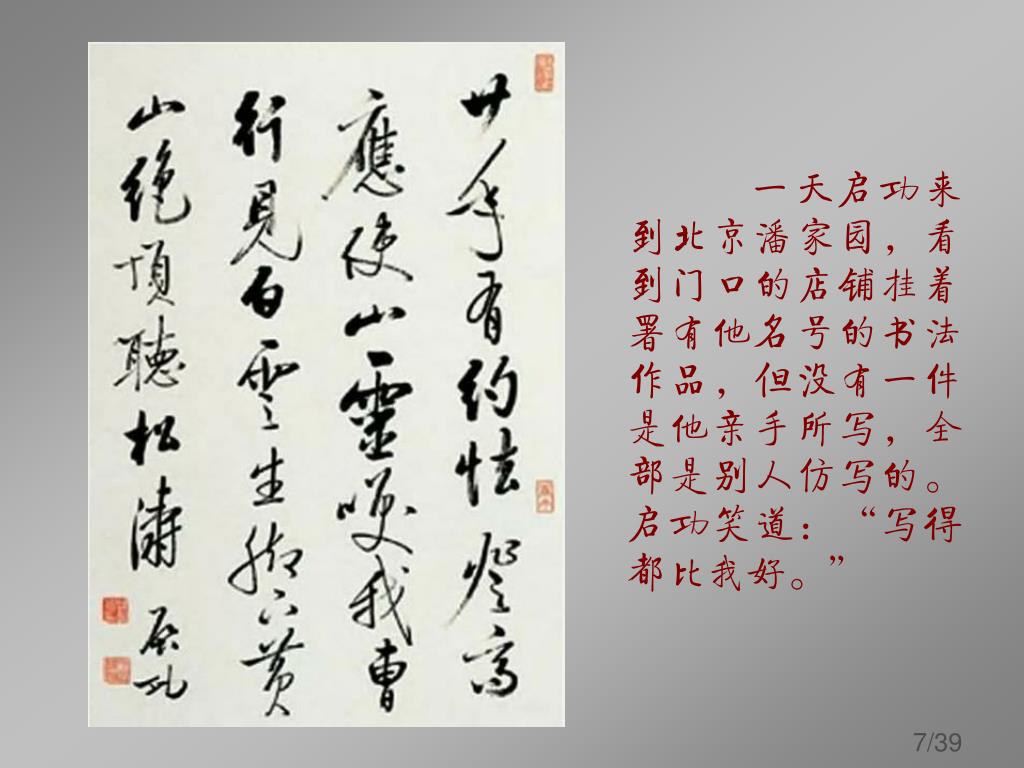 廿年有约怯登高
應使山靈唤我曹
行見白雲生腳下黄
山绝頂聽松濤
启功
一天启功来
到北京潘家园，看
到门口的店铺挂着
署有他名号的书法
作品，但没有一件
是他亲手所写，全
部是别人仿写的。
启功笑道：“写得
都比我好。”
7/39